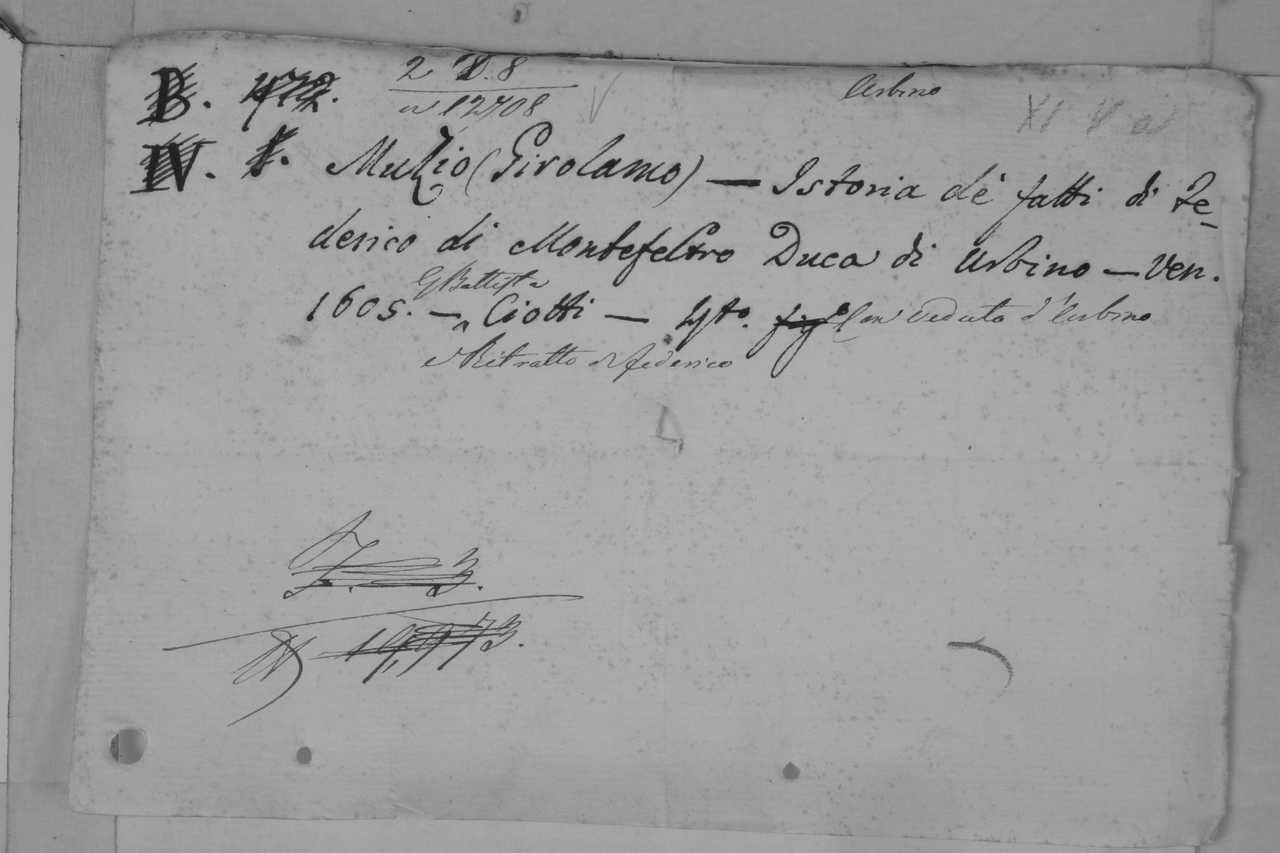 2 D. 8
n 12708
Urbino
XI V a
B. 472.
IV. 1. Muzio (Girolamo) — Istoria de' fatti di Fe-
derico di Montefeltro Duca di Urbino — Ven.
G Battista
1605. — Ciotti — 4to. fig.o Con Veduta d'Urbino
e Ritratto di Federico